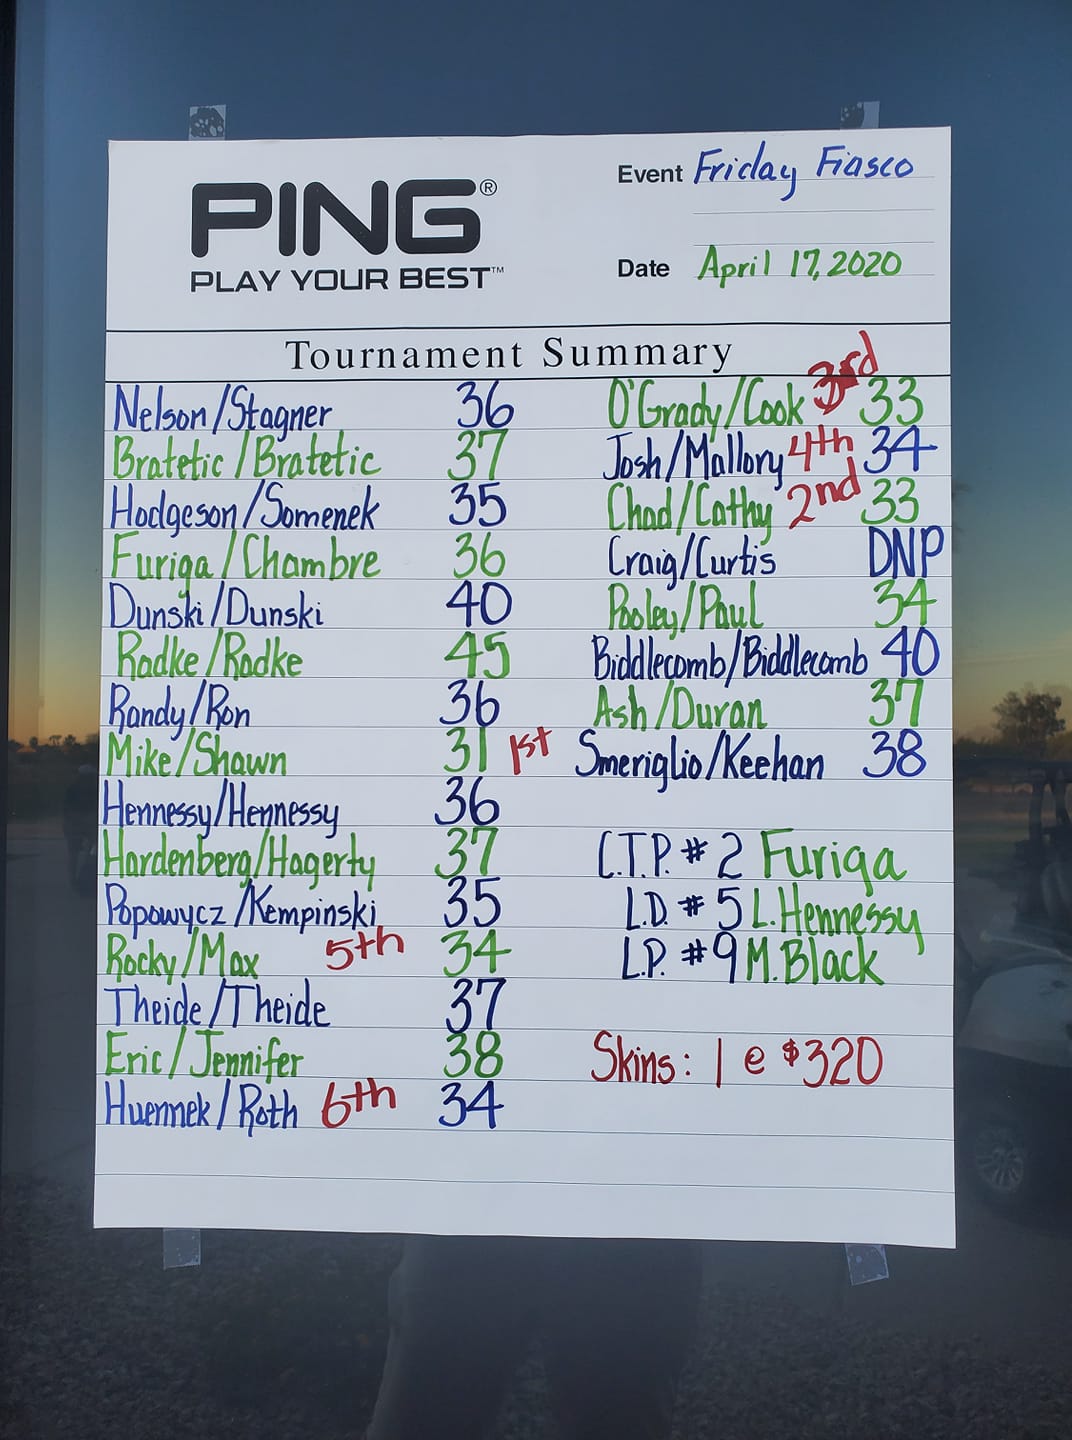 PING®
PLAY YOUR BEST™
Event Friday Fiasco
Date April 17, 2020
Tournament Summary
Nelson/Stagner 36
Bratetic/Bratetic 37
Hodgeson/Somenek 35
Furiga/Chambre 36
Dunski/Dunski 40
Radke/Radke 45
Randy/Ron 36
Mike/Shawn 31 1st
Hennessy/Hennessy 36
Hardenberg/Hagerty 37
Popowycz/Kempinski 35
Rocky/Max 5th 34
Theide/Theide 37
Eric/Jennifer 38
Huennek/Roth 6th 34
O'Grady/Cook 3rd 33
Josh/Mallory 4th 34
Chad/Cathy 2nd 33
Craig/Curtis DNP
Pooley/Paul 34
Biddlecomb/Biddlecomb 40
Ash/Duran 37
Smeriglio/Keehan 38
C.T.P. # 2 Furiga
L.D. # 5 L. Hennessy
L.P. # 9 M. Black
Skins: 1 @ $320